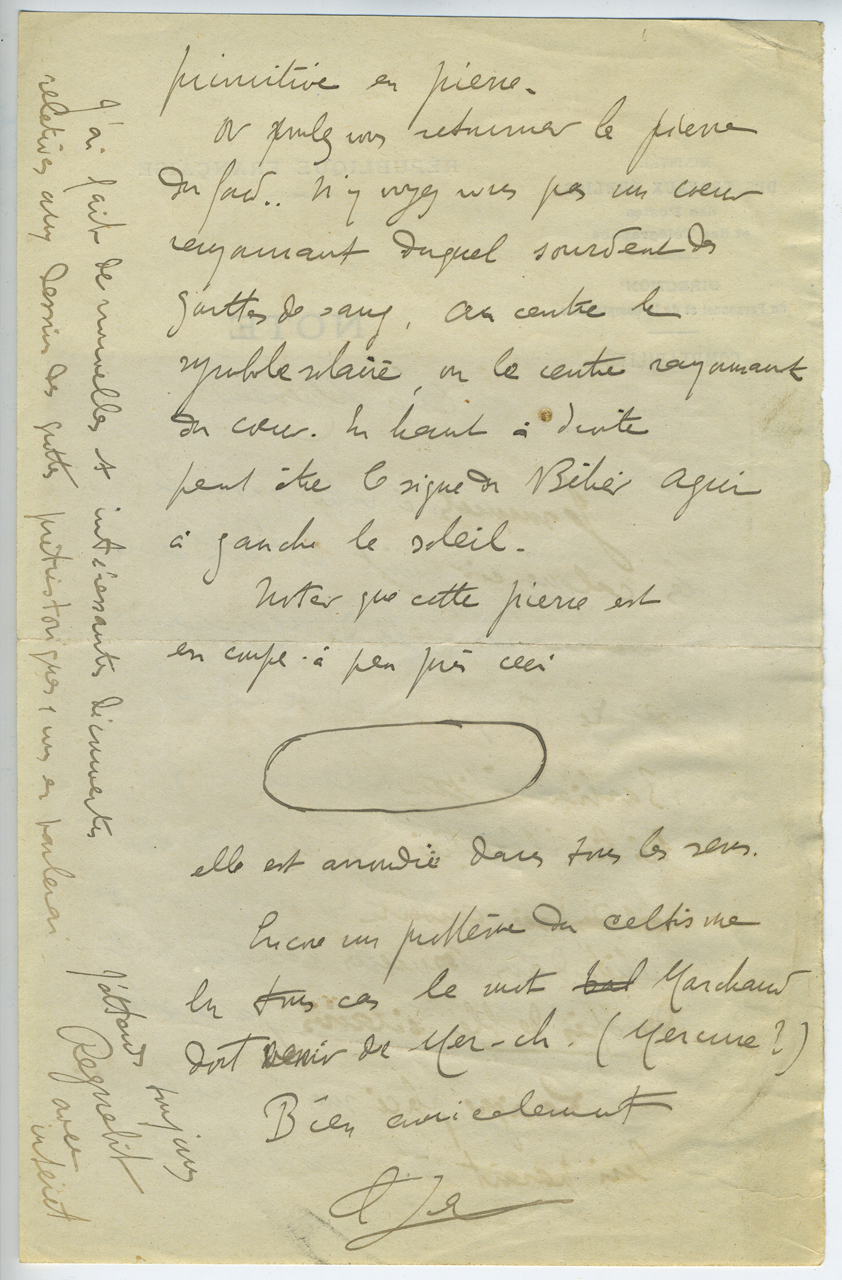 primitive en pierre.
Or voulez vous retourner la pierre
du fond.. N'y voyez vous pas un coeur
rayonnant duquel sourdent des
gouttes de sang, au centre le
symbole solaire, ou le centre rayonnant
du coeur. En haut à droite
peut être le signe du Bélier
à gauche le soleil.
Noter que cette pierre est
en coupe à peu près ceci
elle est arrondie dans tous les sens.
Encore un problème du celtisme
En tous cas le mot Marchand
doit venir de Mer-ch. (Mercure?)
Bien amicalement
J'ai fait de nouvelles et intéressantes découvertes
relatives aux dessins des grottes préhistoriques, vous en parlerai.
J'attends toujours
Regnabit avec
intérêt
RÉPUBLIQUE FRANÇAISE
DIRECTION
NOTE